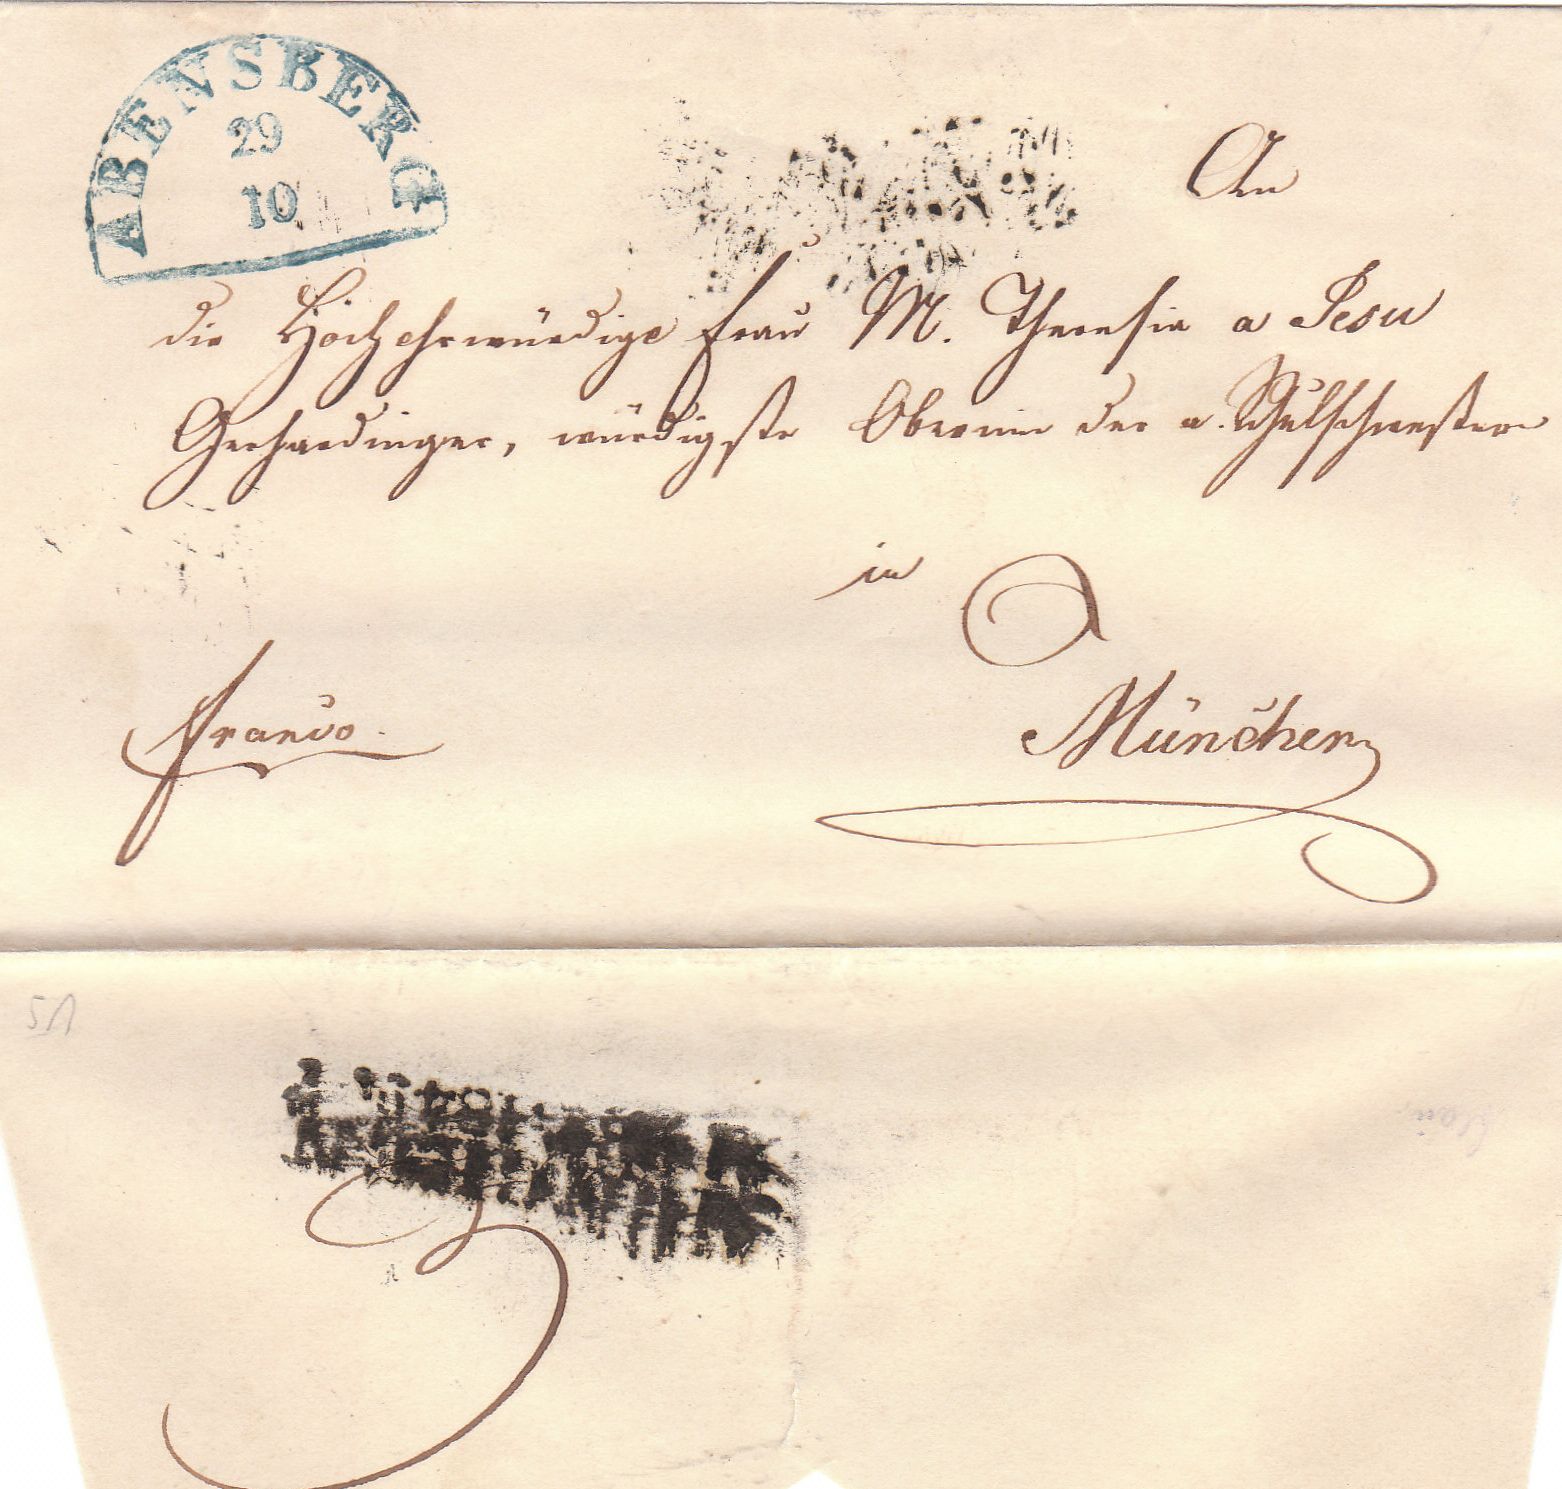 ABENSBERG
29
10
An
die Hochehrwürdige Frau M. Theresia a Jesu
Gerhardinger, würdigste Oberinn der a. Schulschwestern
in
München
franco.